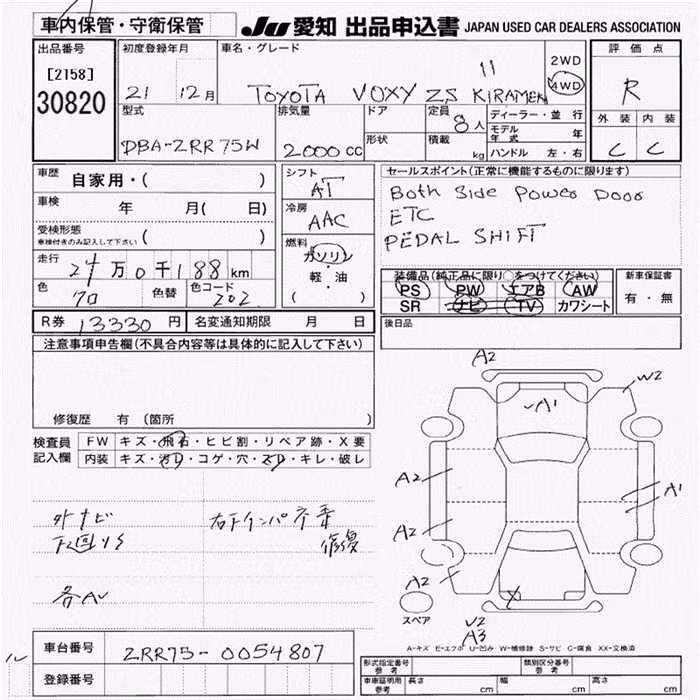 車内保管・守衛保管
JU 愛知 出品申込書 JAPAN USED CAR DEALERS ASSOCIATION
出品番号
[2158]
30820
初度登録年月
21 12月
車名・グレード
TOYOTA VOXY ZS KIRAMEKI
2WD
4WD
評価点
R
外装 内装
C C
型式
DBA-ZRR75W
排気量
2000cc
ドア
形状
定員
8人
積載
kg
ディーラー・並行
モデル年式 年
ハンドル 左・右
車歴 自家用・( )
車検 年 月( 日)
受検形態
車検付きのみ記入して下さい ( )
走行
24万0千188km
色
クロ
色替
色コード
202
シフト
AT
冷房
AAC
燃料
ガソリン
・
軽・油
( )
セールスポイント(正常に機能するものに限ります)
Both Side Power Door
ETC
PEDAL SHIFT
装備品(純正品に限り○をつけてください)
PS PW エアB AW
SR ナビ TV カワシート
新車保証書
有・無
R券 13330円
名変通知期限 月 日
後日品
注意事項申告欄(不具合内容等は具体的に記入して下さい)
修復歴 有 (箇所 )
検査員記入欄
FW キズ・飛石・ヒビ割・リペア跡・X要
内装 キズ・汚れ・コゲ・穴・スレ・キレ・破レ
外ナビ
下廻りS
各AU
修復
A2
W2
A1
A2
A1
A2
A2
スペア
U2
A3
A-キズ E-エクボ U-凹み W-補修跡 S-サビ C-腐食 XX-交換済
車台番号 ZRR75-0054807
登録番号
ル
形式指定番号
参考
類別区分番号
参考
車庫証明用
参考
長さ cm
幅 cm
高さ cm